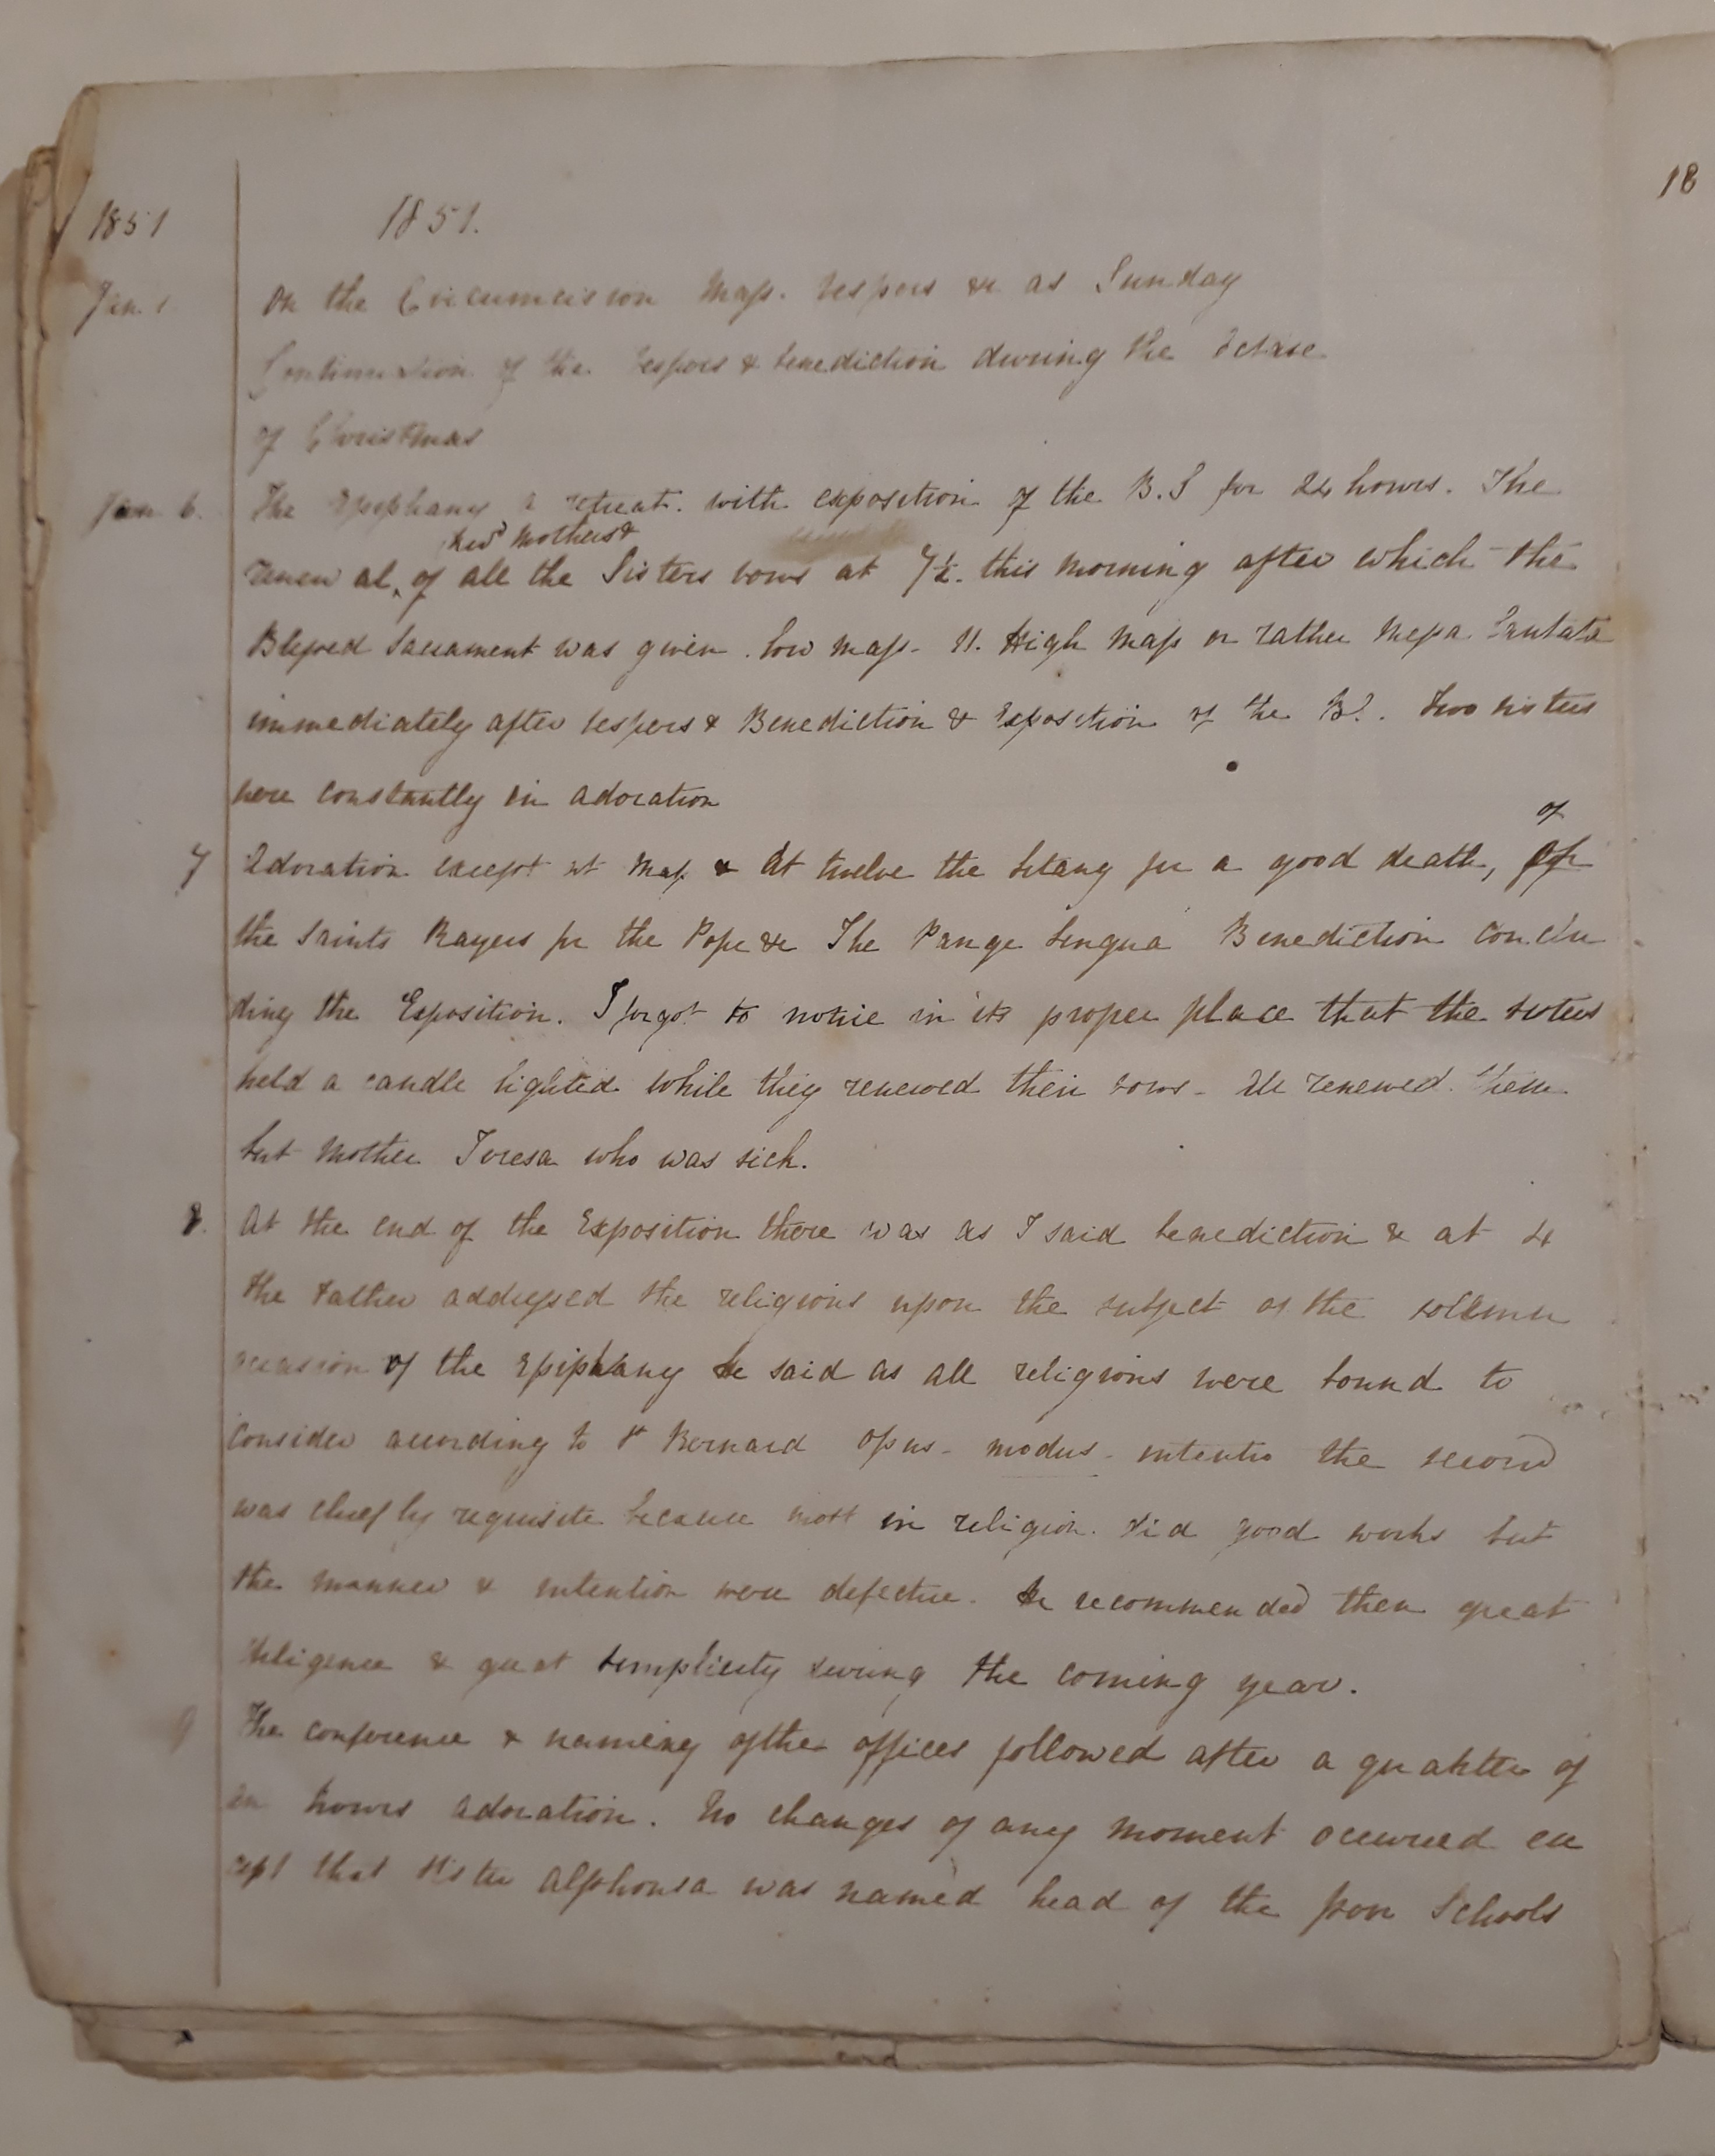 18
1851 1851.
Jan. 1 On the Circumcision Mass. Vespers &c as Sunday
Continuation of the Vespers & benediction during the Octave
of Christmas
Jan 6. The Epiphany a retreat. with exposition of the B.S for 24 hours. The
Revd Mothers &
renewal, of all the Sisters vows at 7½. this morning after which the
Blessed Sacrament was given. Low Mass. 11. High Mass or rather Messa Cantata
immediately after Vespers & Benediction & Exposition of the B.S. Two sisters
were constantly in adoration
of
7 Adoration except at Mass & At twelve the Litany for a good death, for
the Saints Prayers for the Pope &c The Pange Lingua Benediction conclu
ding the Exposition. I forgot to notice in its proper place that the sisters
held a candle lighted while they renewed their vows. All renewed them
but Mother Teresa who was sick.
8. At the end of the Exposition there was as I said benediction & at 4
the Father addressed the religious upon the subject of the solemn
occasion of the Epiphany he said as all religious were bound to
consider according to St Bernard opus - modus - intentio the second
was chiefly requisite because most in religion. did good works but
the manner & intention were defective. He recommended then great
diligence & great simplicity during the coming year.
9 The conference & naming of the offices followed after a quarter of
an hours adoration. No changes of any moment occurred ex
cept that Sister Alphonsa was named head of the poor Schools